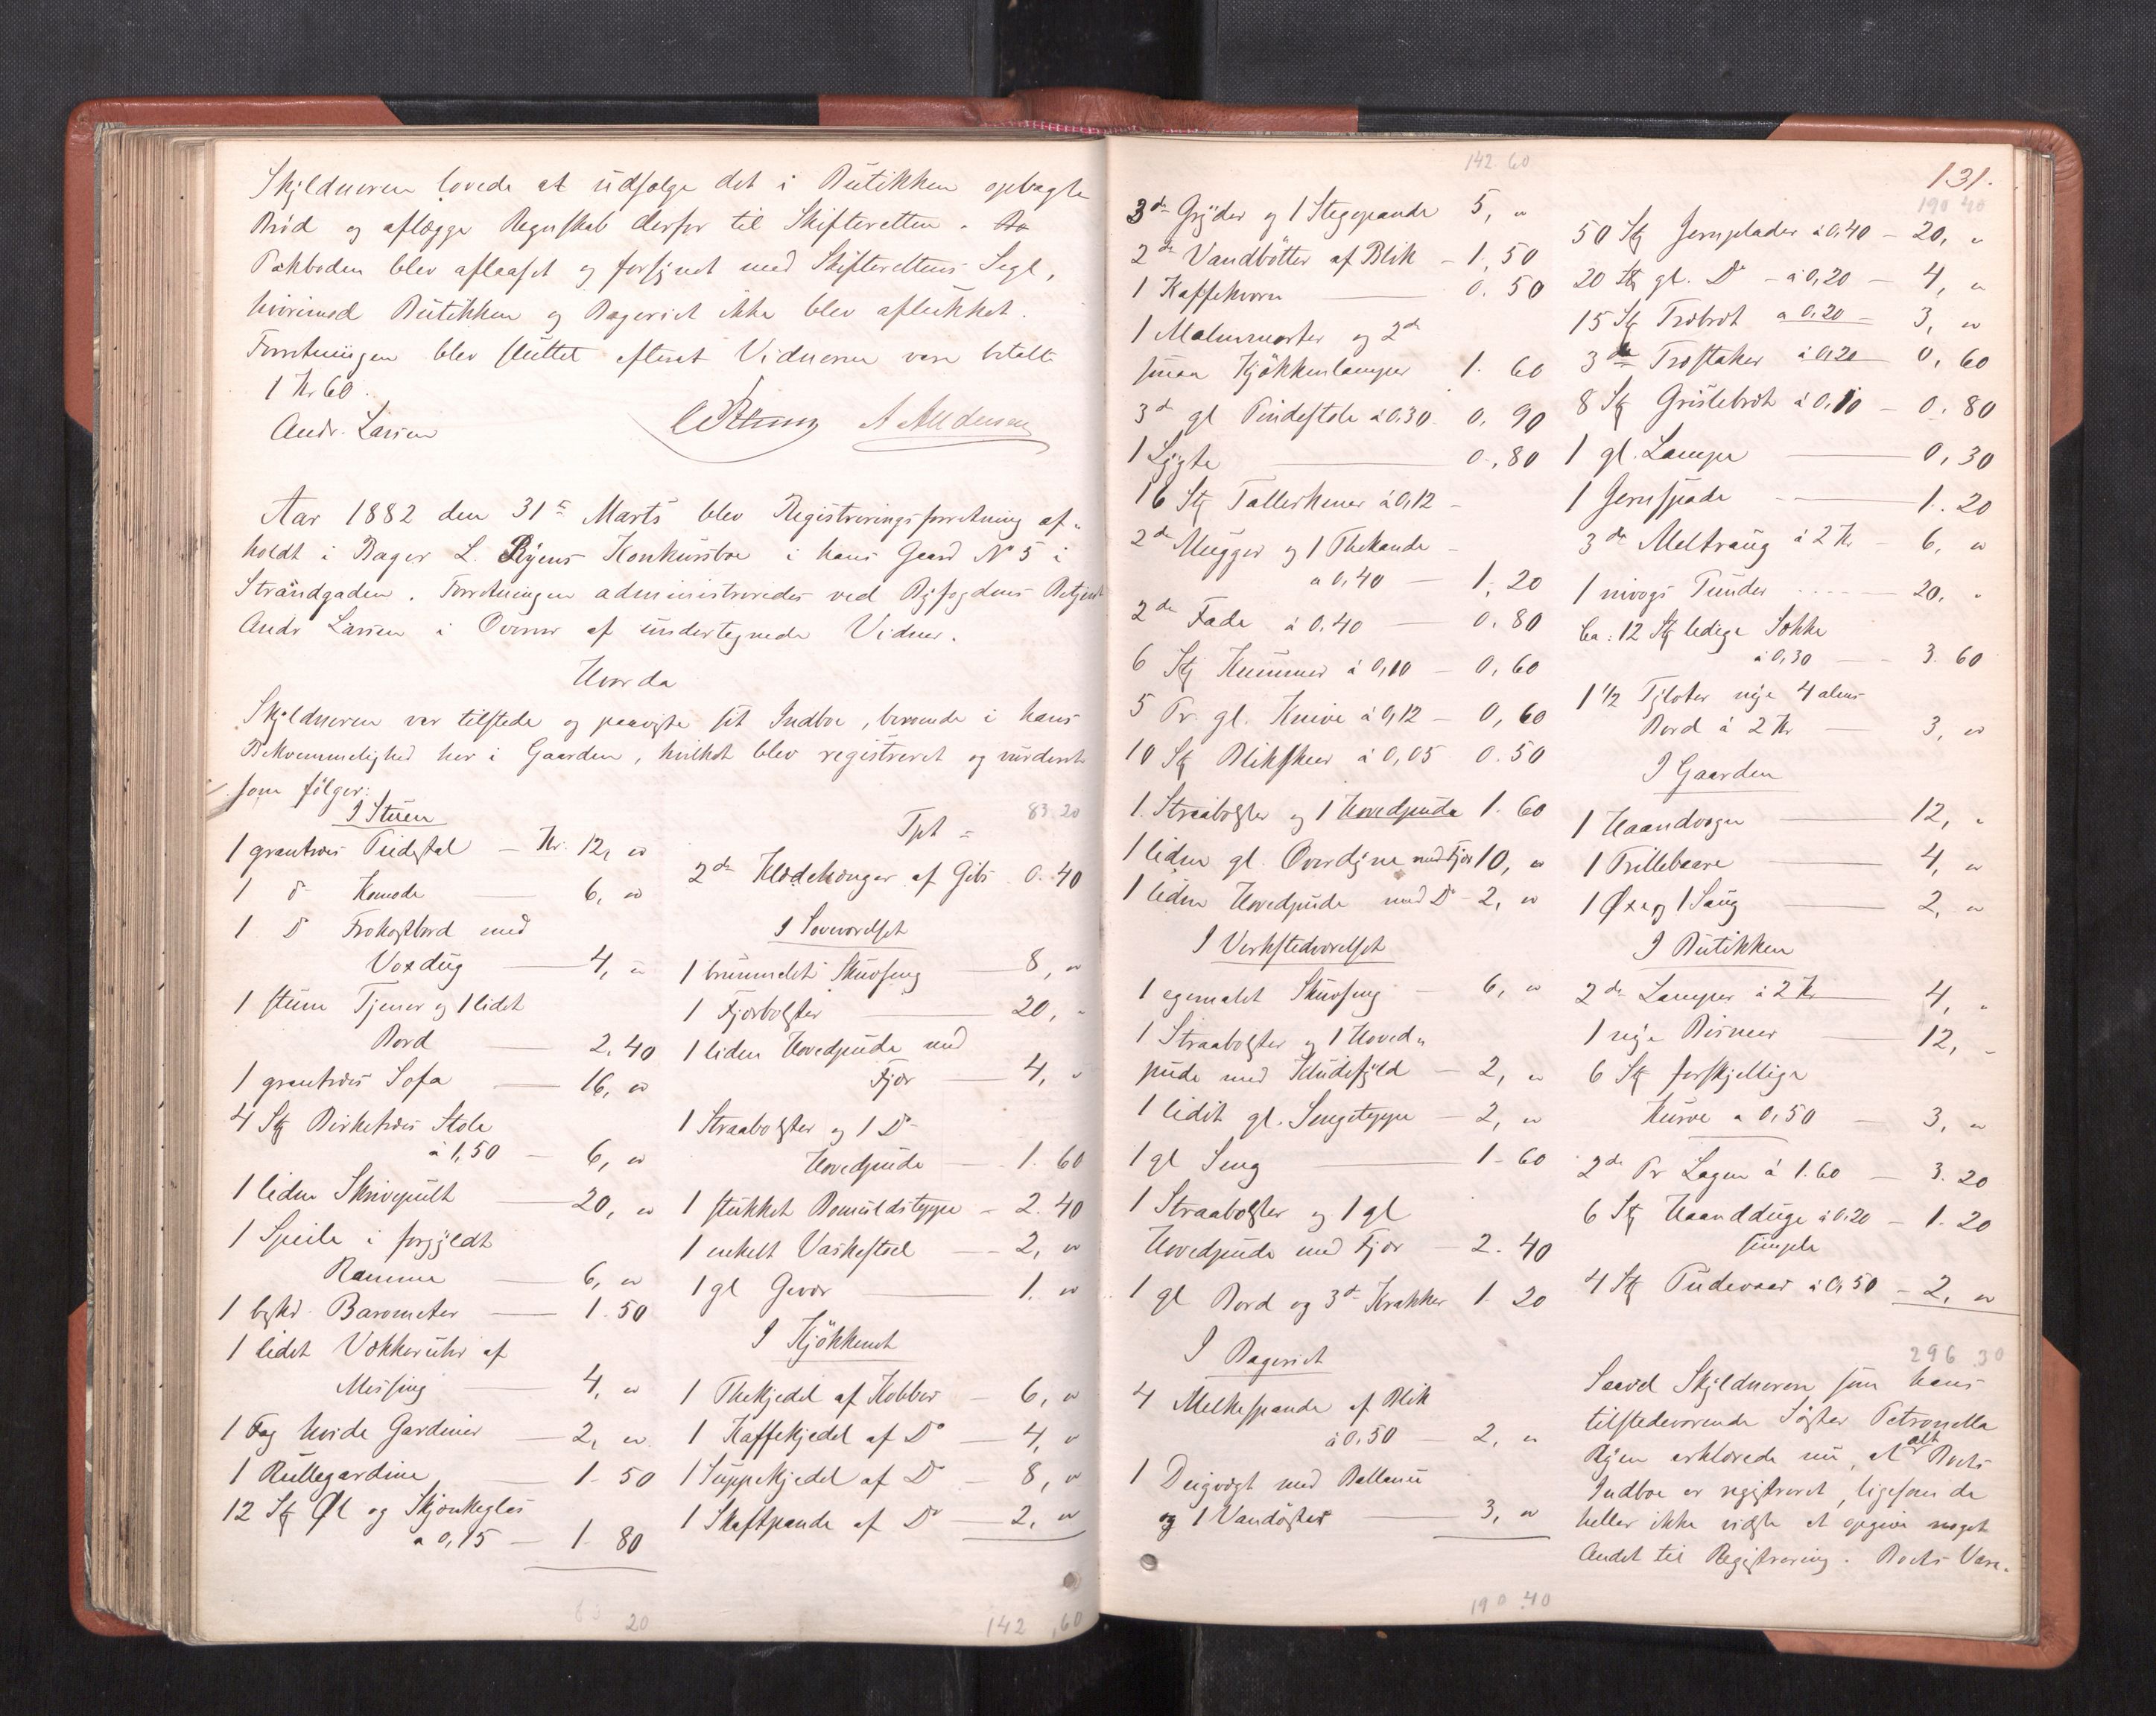 Skyldneren lovede at udsælge det i Butikken opbagte
Brød og aflægge Regnskab derfor til Skifteretten.
Pakboden blev aflaaset og forsynet med Skifterettens Segl,
hvorimod Butikken og Bageriet ikke blev aflukket.
Forretningen blev sluttet efterat Vidnerne vare betalt
1 Kr 60.
Andr. Larsen
Aar 1882 den 31te Marts blev Registreringsforretning af-
holdt i Bager L. Ryens Konkursbo i hans Gaard No 5 i
Strandgaden. Forretningen administreredes ved Byfogdens Betjent
Andr Larsen i Overvær af undertegnede Vidner.
Hvorda
Skyldneren var tilstede og paaviste sit Indbo, beroende i hans
Bekvemmelighed her i Gaarden, hvilket blev registreret og vurderet
som følger:
I Stuen
1 grantræes Pidestal — Kr. 12, "
1 do Komode — 6, "
1 do Frokostbord med
Voxdug — 4, "
1 stum Tjener og 1 lidet
Bord — 2,40
1 grantræes Sofa — 16, "
4 Stk Birketræes Stole
à 1,50 — 6, "
1 liden Skrivepult — 20, "
1 Speile i forgyldt
Ramme — 6, "
1 beskd. Barometer — 1.50
1 lidet Vækkeruhr af
Messing — 4, "
1 Fag hvide Gardiner — 2, "
1 Rullegardine — 1. 50
12 Stk Øl og Skjænkeglas
a 0,15 — 1 80
83 20
Tpt = 83.20
2de Klædehænger af Gibs 0. 40
I Soveværelset
1 brunmalet Skuvseng — 8, "
1 Fjærbolster — 20, "
1 liden Hovedpude med
Fjær — 4, "
1 Straabolster og 1 Do
Hovedpude — 1. 60
1 stukket Bomuldsteppe — 2.40
1 enkelt Vaskestel — 2, "
1 gl Gevær — 1. "
I Kjøkkenet
1 Thekjedel af Kobber — 6, "
1 Kaffekjedel af Do — 4, "
1 Suppekjedel af Do — 8, "
1 Skaftpande af Do — 2, "
142,60
142.60
3de Gryder og 1 Stegepande 5, "
2de Vandbøtter af Blik — 1,50
1 Kaffekværn — 0. 50
1 Malmmorter og 2de
smaa Kjøkkenlamper 1. 60
3de gl Pindestole à 0,30. 0. 90
1 Lygte — 0,80
16 Stk Tallerkener à 0,12 -
2de Mugger og 1 Thekande -
a 0,40 — 1,20
2de Fade à 0.40 — 0.80
6 Stk Kummer à 0,10 — 0,60
5 Pr. gl. Knive à 0,12 — 0,60
10 Stk Blikskeer à 0,05 0.50
1. Straabolster og 1 Hovedpude 1. 60
1 liden gl. Overdyne med Fjær 10, "
1 liden Hovedpude med Do - 2, "
I Verkstedværelset
1 egemalet Skuvseng — 6, "
1 Straabolster og 1 Hoved-
pude med Kludefyld — 2, "
1 lidet gl. Sengeteppe — 2, "
1 gl Seng — 1. 60
1 Straabolster og 1 gl
Hovedpude med Fjær — 2. 40
1 gl Bord og 3de Krakker 1. 20
I Bageriet
4 Melkespande af Blik
à 0,50 — 2, "
1 Deigvægt med Ballance
og 1 Vandøster — 3, "
190.40
131.
190 40
50 Stk Jernplader à 0,40 — 20, "
20 Stk gl. Do — à 0,20 — 4, "
15 Stk Træbræt a 0,20 — 3, "
3de Træstaker à 0,20 — 0,60
8 Stk Grislebræt à 0,10 — 0.80
1 gl. Lampe — 0,30
1 Jernspade — 1.20
3de Meltraug à 2 Kr — 6, "
20, "
Ca: 12 Stk ledige Sække
à 0,30 — 3.60
1 1/2 Tylvter nye 4 alens
Bord à 2 Kr — 3, "
I Gaarden
1 Haandvogn — 12, "
1 Trillebaare — 4, "
1 Øxe og 1 Saug — 2, "
I Butikken
2de Lamper à 2 Kr — 4, "
1 nye Bismer — 12, "
6 Stk forskjellige
Kurve a 0,50 — 3, "
2de Pr Lagen à 1.60 — 3.20
6 Stk Haandduge à 0,20 — 1.20
simple
4 Stk Pudevaar à 0,50 — 2, "
296.30
Saavel Skyldneren som hans
tilstedeværende Søster Petronella
Ryen erklærede nu, at alt Boets
Indbo er registreret, ligesom de
heller ikke vidste at opgive noget
Andet til Registrering. Boets Vare-